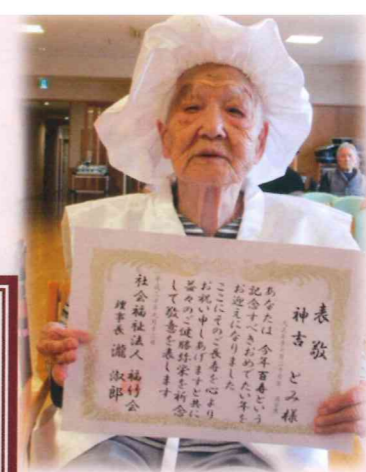 表敬
神吉 とみ様
あなたは 今年百寿という
記念すべきおめでたい年を
お迎えになりました
ここにそのご長寿を心より
お祝い申しあげますと共に
益々のご健勝弥栄を祈念
して敬意を表します
社会福祉法人 福竹会
理事長 瀧 淑郎